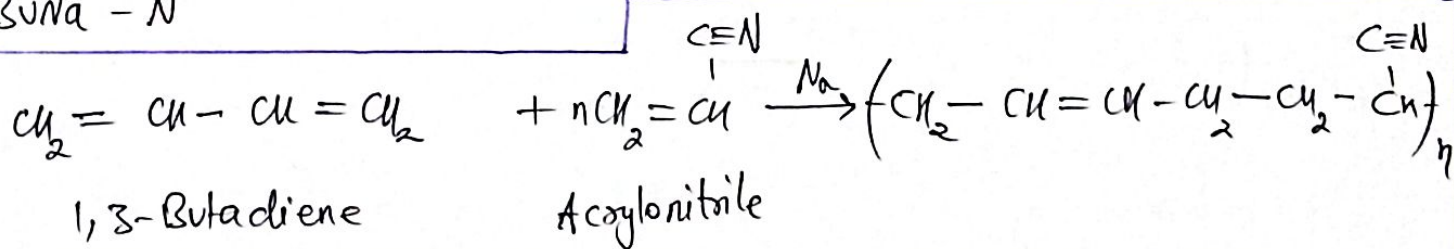 BUNa - N
C≡N C≡N
CH₂ = CH - CH = CH₂ + nCH₂ = CH Na → (CH₂ - CH = CH - CH₂ - CH₂ - CH)n
1,3-Butadiene Acrylonitrile